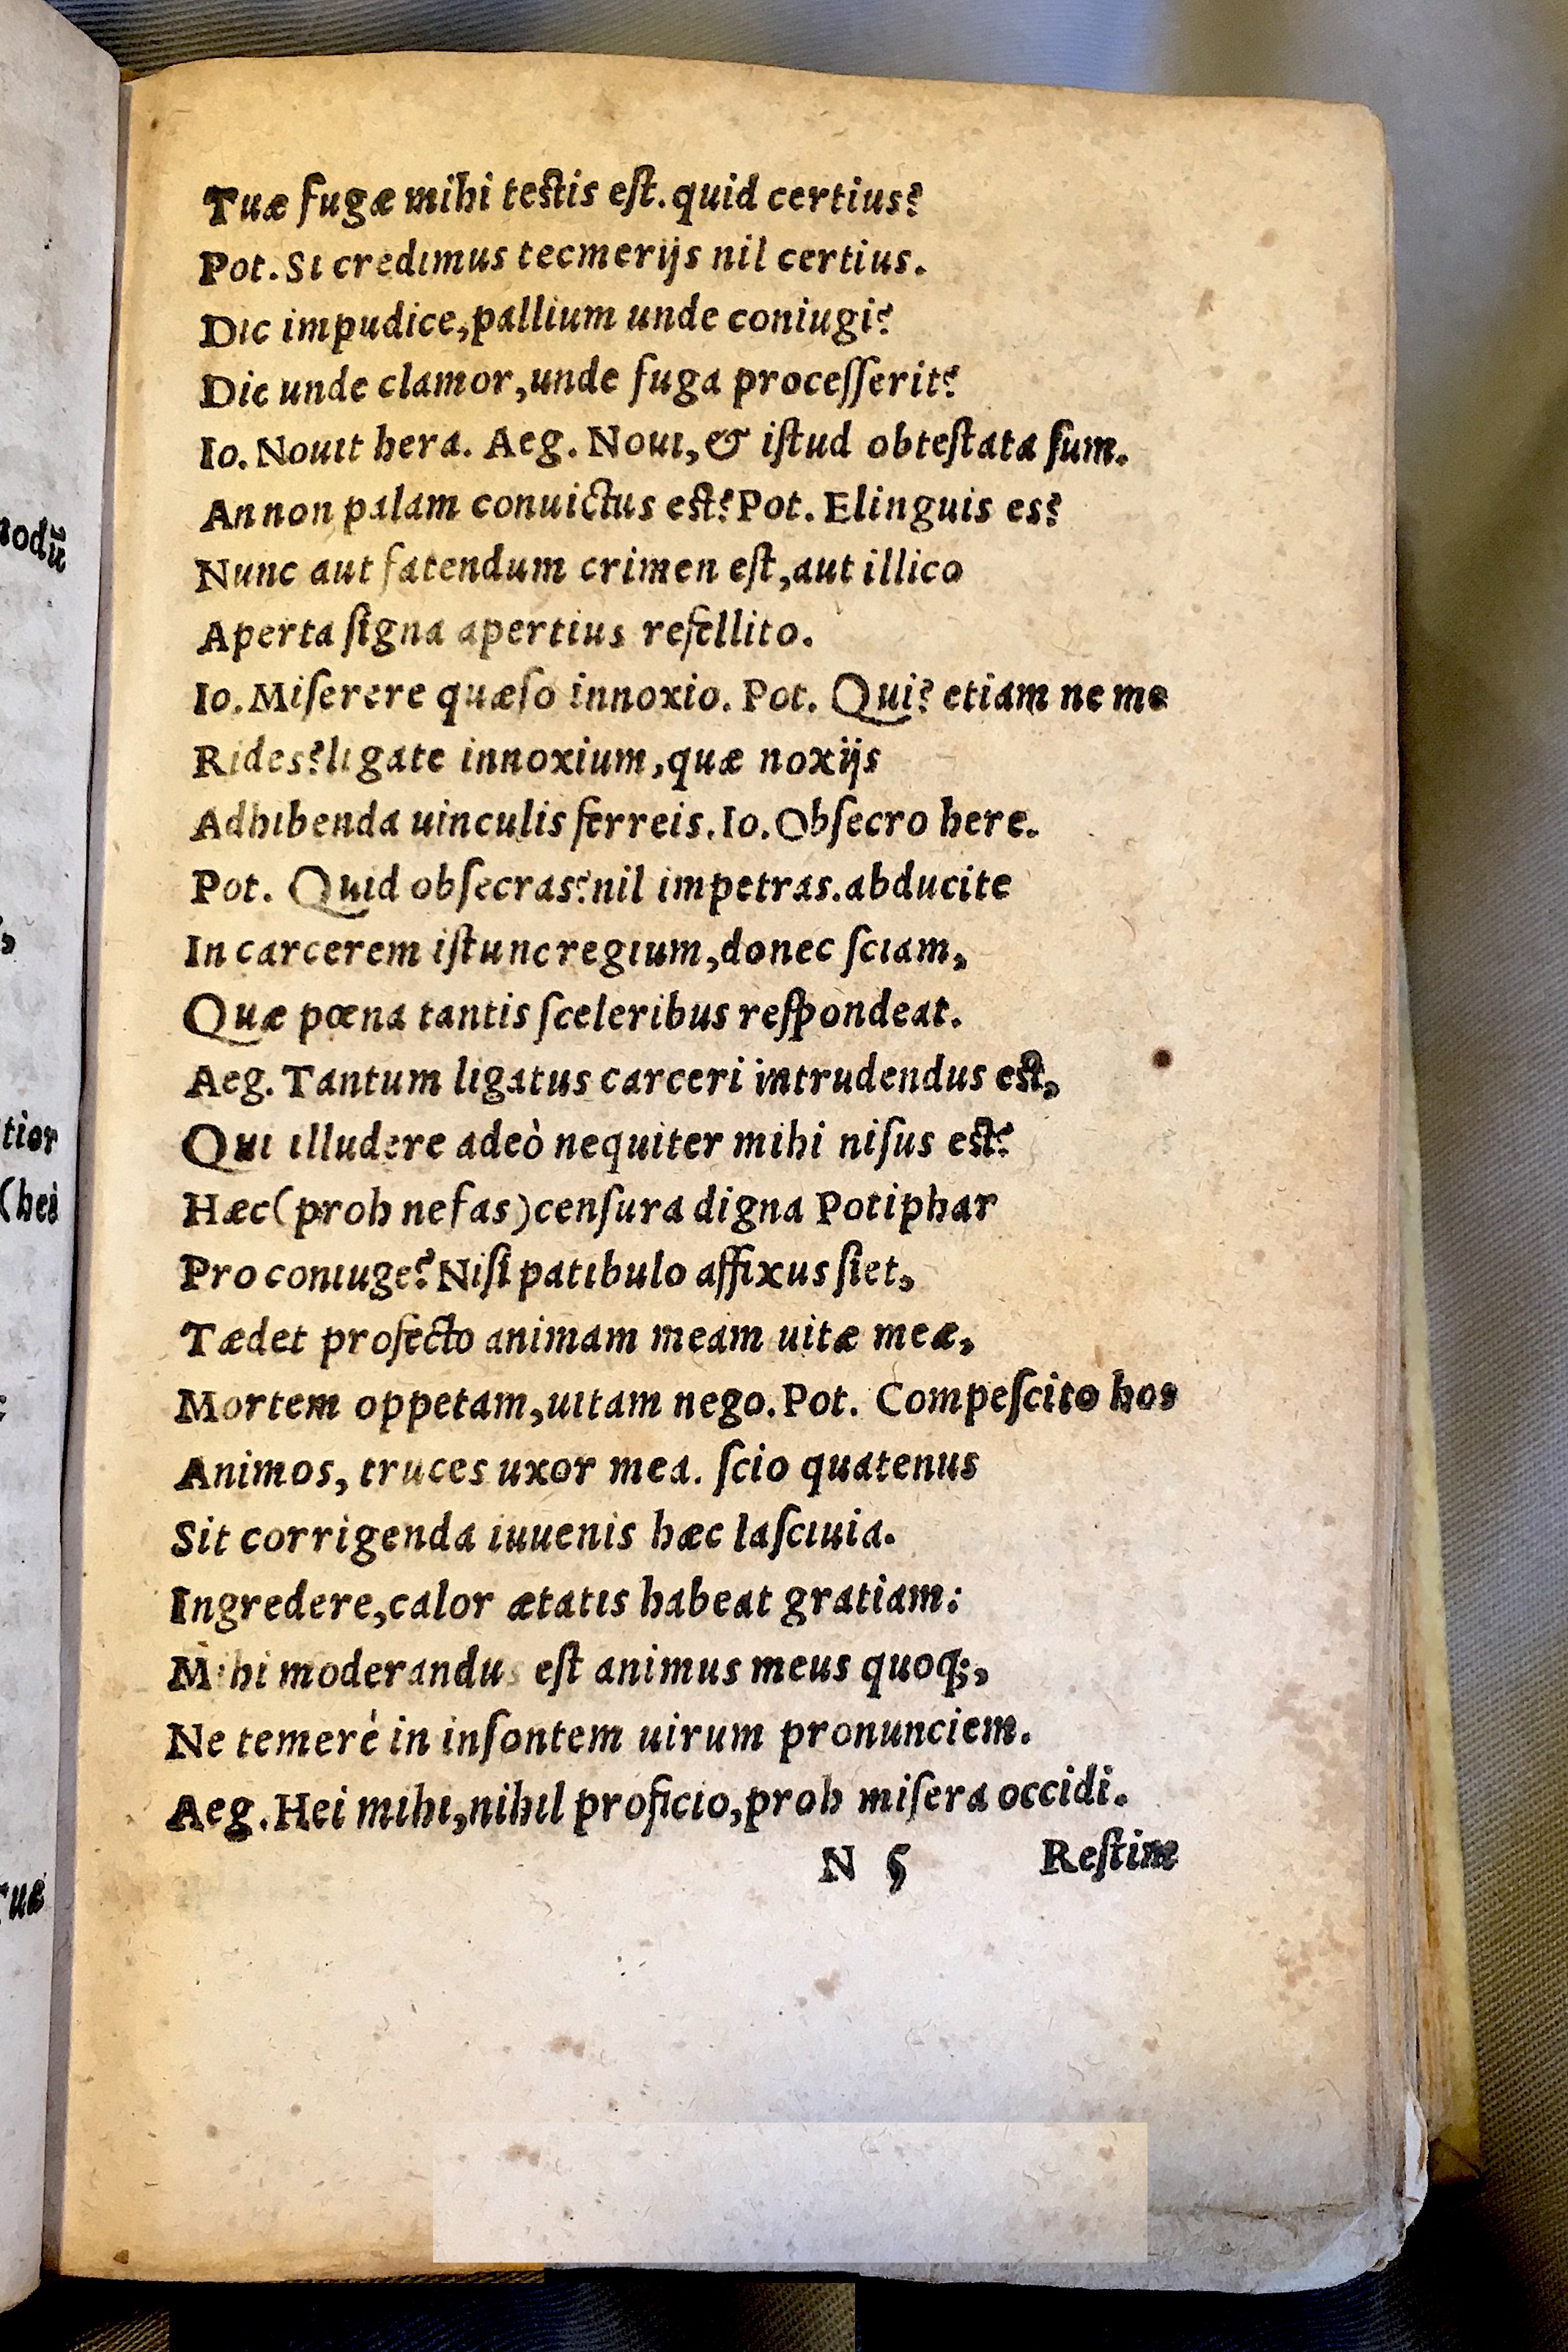 Tuæ fugæ mihi teſtis eſt. quid certius?
Pot. Si credimus tecmerijs nil certius.
Dic impudice, pallium unde coniugi?
Dic unde clamor, unde fuga proceſſerit?
Io. Nouit hera. Aeg. Noui, & iſtud obteſtata ſum.
An non palam conuictus eſt? Pot. Elinguis es?
Nunc aut fatendum crimen eſt, aut illico
Aperta ſigna apertius refellito.
Io. Miſerere quæſo innoxio. Pot. Qui? etiam ne me
Rides? ligate innoxium, quæ noxijs
Adhibenda uinculis ferreis. Io. Obſecro here.
Pot. Quid obſecras? nil impetras. abducite
In carcerem iſtunc regium, donec ſciam,
Quæ pœna tantis ſceleribus reſpondeat.
Aeg. Tantum ligatus carceri intrudendus eſt,
Qui illudere adeò nequiter mihi niſus eſt?
Hæc (proh nefas) cenſura digna Potiphar
Pro coniuge? Niſi patibulo affixus ſiet,
Tædet profecto animam meam uitæ meæ,
Mortem oppetam, uitam nego. Pot. Compeſcito hos
Animos, truces uxor mea. ſcio quatenus
Sit corrigenda iuuenis hæc laſciuia.
Ingredere, calor ætatis habeat gratiam:
Mihi moderandus eſt animus meus quoq;,
Ne temerè in inſontem uirum pronunciem.
Aeg. Hei mihi, nihil proficio, proh miſera occidi.
N 5 Reſtim